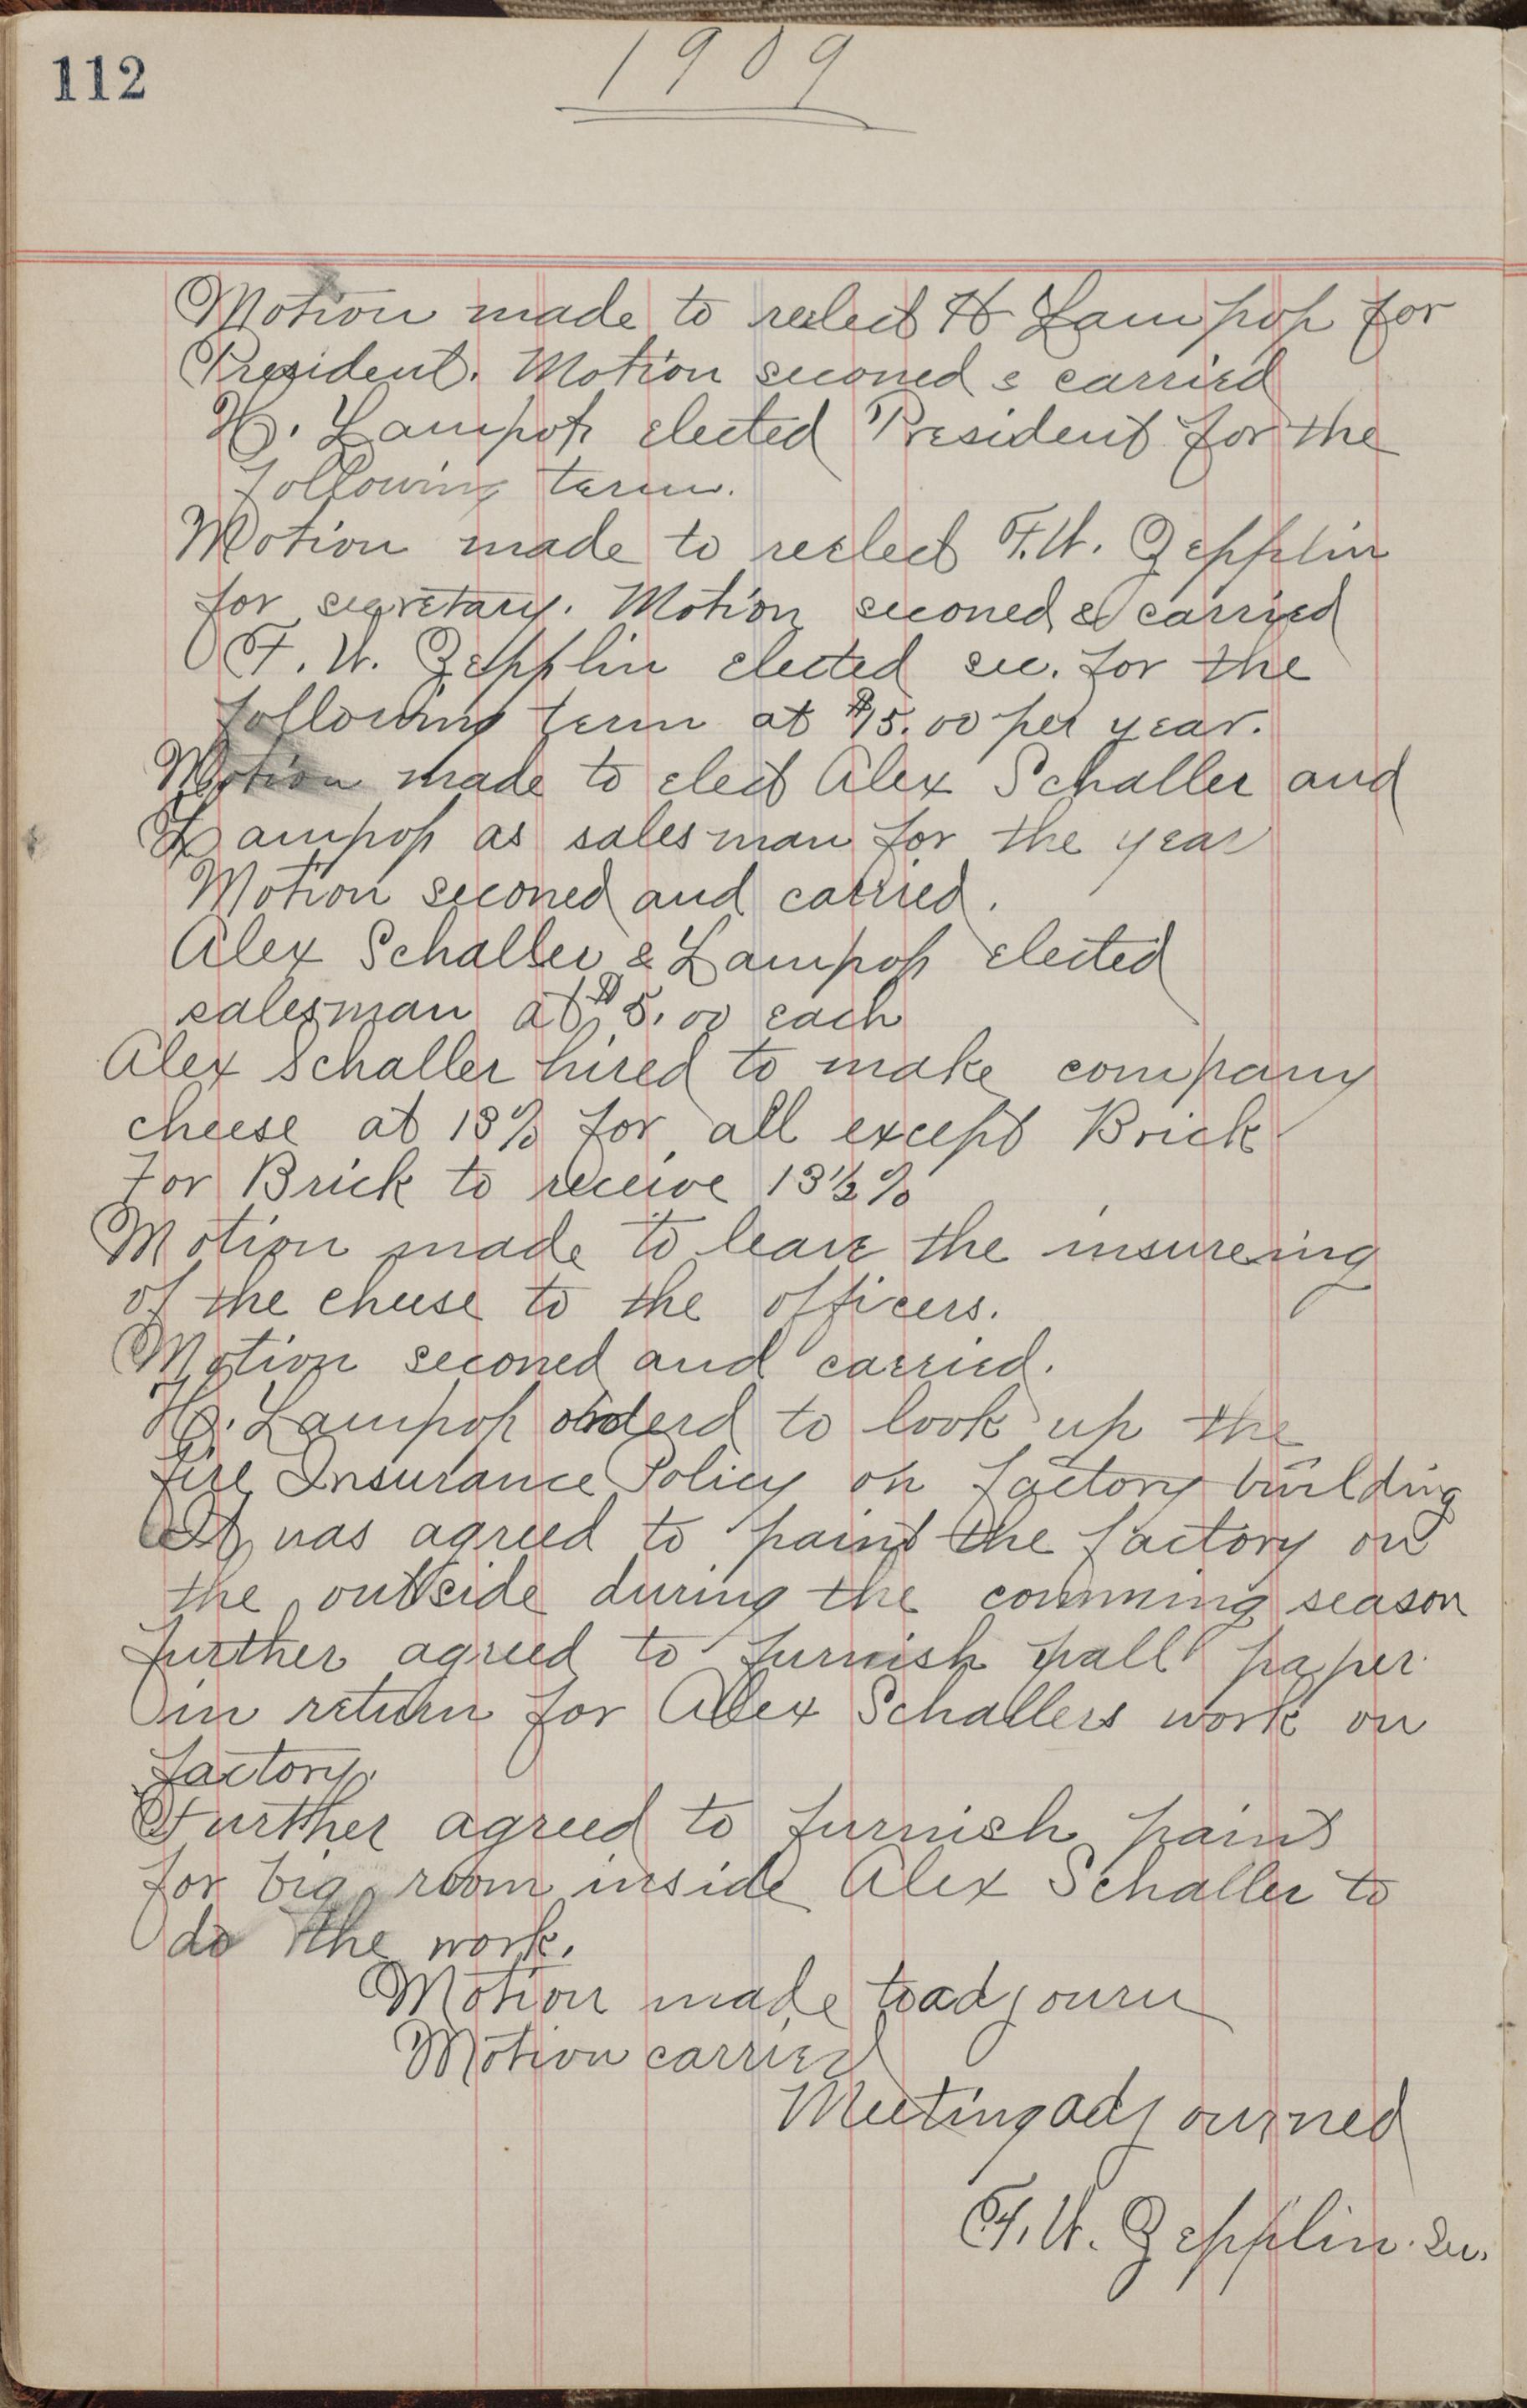 112
1909
Motion made to reelect H Lampop for
President. Motion seconed & carried
H. Lampop elected President for the
following term.
Motion made to reelect F.W. Zepplin
for secretary. Motion seconed & carried
F. W. Zepplin elected sec. for the
following term at $75.00 per year.
Motion made to elect Alex Schaller and
Lampop as salesman for the year
Motion seconed and carried.
Alex Schaller & Lampop elected
salesman at $5.00 each
Alex Schaller hired to make company
cheese at 13% for all except Brick
For Brick to receive 13½%
Motion made to leave the insureing
of the cheese to the officers.
Motion seconed and carried.
H. Lampop orderd to look up the
fire Insurance Policy on factory building
It was agreed to paint the factory on
the outside during the comming season
further agreed to furnish wall paper
in return for Alex Schallers work on
factory.
Further agreed to furnish paint
for big room inside Alex Schaller to
do the work.
Motion made to adjourn
Motion carried
Meeting adjourned
F. W. Zepplin. Sec.